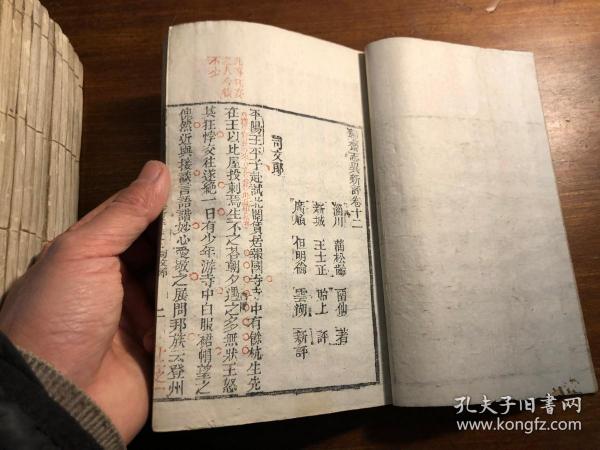 聊齋志異新評卷十二
淄川 蒲松齡 留仙 著
新城 王士正 貽上 評
廣順 但明倫 雲湖 新評
司文郎
平陽王平子赴試北闈賃居報國寺寺中有餘杭生先
在王以比屋投刺焉生不之答朝夕遇之多無狀王怒
其狂悖交往遂絕一日有少年遊寺中白服裙帽望之
傀然近與接談言語諧妙心愛敬之展問邦族云登州
孔夫子旧书网
www.kongfz.com